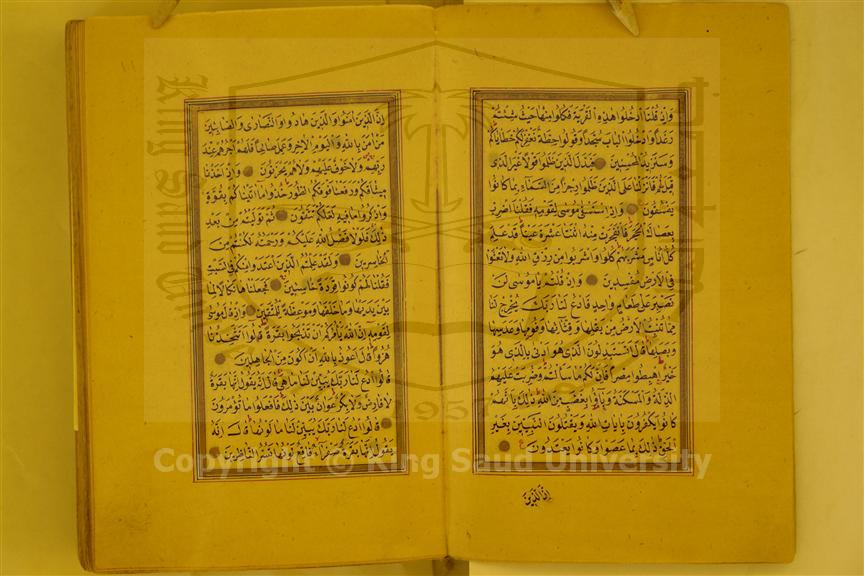 واذ قلنا ادخلوا هذه القرية فكلوا منها حيث شئتم
رغدا وادخلوا الباب سجدا وقولوا حطة نغفر لكم خطاياكم
وسنزيد المحسنين فبدل الذين ظلموا قولا غير الذى
قيل لهم فانزلنا على الذين ظلموا رجزا من السماء بما كانوا
يفسقون واذ استسقى موسى لقومه فقلنا اضرب
بعصاك الحجر فانفجرت منه اثنتا عشرة عينا قد علم
كل اناس مشربهم كلوا واشربوا من رزق الله ولا تعثوا
فى الارض مفسدين واذ قلتم يا موسى لن
نصبر على طعام واحد فادع لنا ربك يخرج لنا
مما تنبت الارض من بقلها وقثائها وفومها وعدسها
وبصلها قال اتستبدلون الذى هو ادنى بالذى هو
خير اهبطوا مصرا فان لكم ما سالتم وضربت عليهم
الذلة والمسكنة وباؤا بغضب من الله ذلك بانهم
كانوا يكفرون بايات الله ويقتلون النبيين بغير
الحق ذلك بما عصوا وكانوا يعتدون
ان الذين
ان الذين امنوا والذين هادوا والنصارى والصابئين
من امن بالله واليوم الاخر وعمل صالحا فلهم اجرهم عند
ربهم ولا خوف عليهم ولا هم يحزنون واذ اخذنا
ميثاقكم ورفعنا فوقكم الطور خذوا ما اتيناكم بقوة
واذكروا ما فيه لعلكم تتقون ثم توليتم من بعد
ذلك فلولا فضل الله عليكم ورحمته لكنتم من
الخاسرين ولقد علمتم الذين اعتدوا منكم فى السبت
فقلنا لهم كونوا قردة خاسئين فجعلناها نكالا لما
بين يديها وما خلفها وموعظة للمتقين واذ قال موسى
لقومه ان الله يأمركم ان تذبحوا بقرة قالوا اتتخذنا
هزوا قال اعوذ بالله ان اكون من الجاهلين
قالوا ادع لنا ربك يبين لنا ما هى قال انه يقول انها بقرة
لا فارض ولا بكر عوان بين ذلك فافعلوا ما تؤمرون
قالوا ادع لنا ربك يبين لنا ما لونها قال انه
يقول انها بقرة صفراء فاقع لونها تسر الناظرين
1957
Copyright © King Saud University